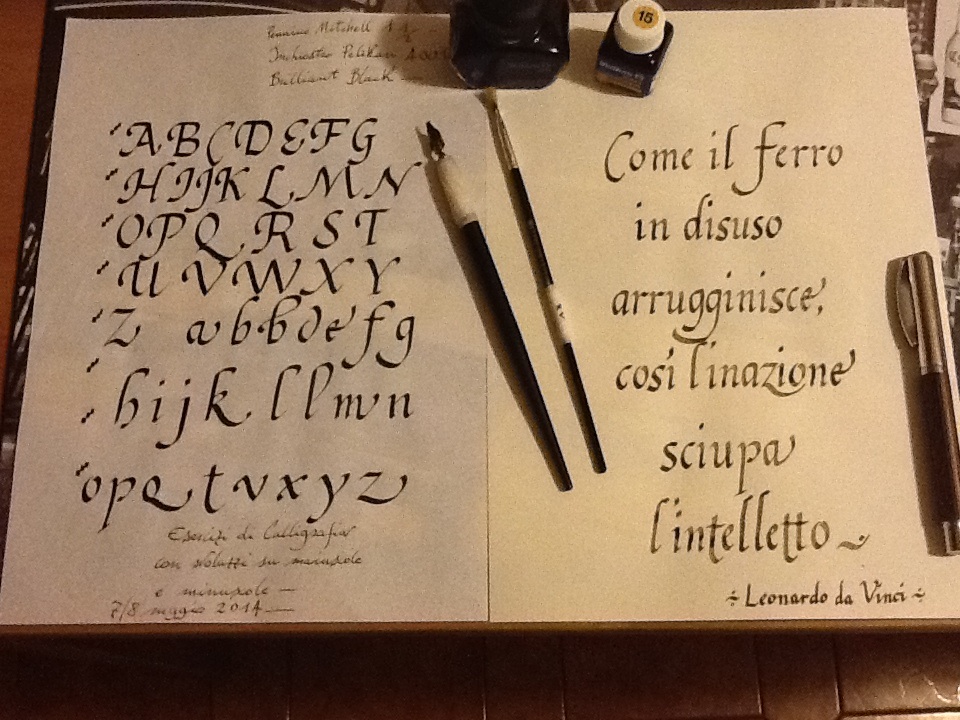 Pennino Mitchell 1 1/2
Inchiostro Pelikan 4001
Brilliant Black
A B C D E F G
H I J K L M N
O P Q R S T
U V W X Y
Z a b b d e f g
h i j k l l m n
o p Q t v x y z
Esercizi di Calligrafia
con svoluzzi su maiuscole
e minuscole —
7/8 maggio 2014 —
15
Come il ferro
in disuso
arrugginisce,
così l'inazione
sciupa
l'intelletto
÷ Leonardo da Vinci ÷